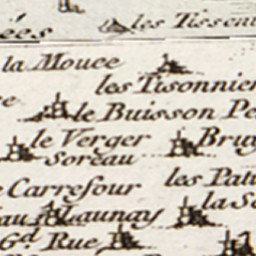 les Tissen
ées
la Mouee
les Tisonnier
le Buisson Pe
le Verger
Soreau
Bru
Carrefour
les Patu
la So
au Launay
Gd Rue